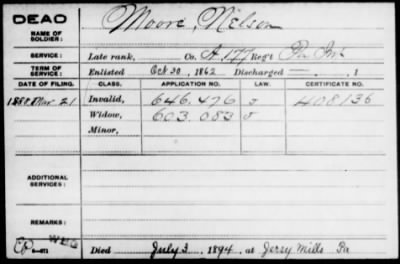 DEAD
NAME OF SOLDIER: Moore, Nelson
SERVICE: Late rank, Co. A. 177 Reg't Pa Inf
TERM OF SERVICE: Enlisted Oct 30, 1862 Discharged , 1
DATE OF FILING. CLASS. APPLICATION NO. LAW. CERTIFICATE NO.
1888 Mar. 21 Invalid, 646.476 408136
Widow, 603.083
Minor,
ADDITIONAL SERVICES:
REMARKS:
Died July 3, 1894, at Jerzy Mills Pa